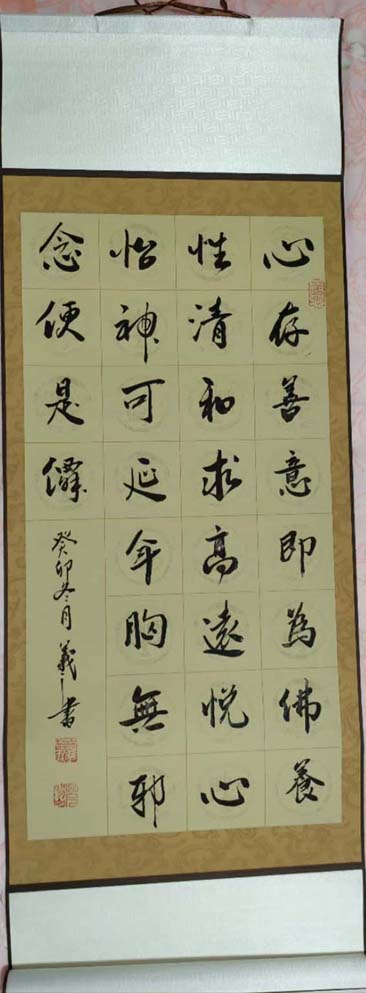 心存善意即為佛養
性清和求高遠悅心
怡神可延年胸無邪
念便是僊
癸卯冬月 義書